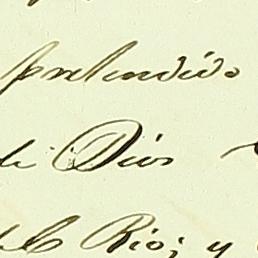 pretendido
de Dios
del Rio; y